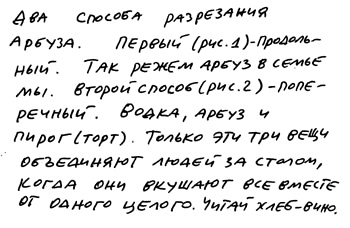 ДВА СПОСОБА РАЗРЕЗАНИЯ
АРБУЗА. ПЕРВЫЙ (РИС. 1) - ПРОДОЛЬ-
НЫЙ. ТАК РЕЖЕМ АРБУЗ В СЕМЬЕ
МЫ. ВТОРОЙ СПОСОБ (РИС. 2) - ПОПЕ-
РЕЧНЫЙ. ВОДКА, АРБУЗ И
ПИРОГ (ТОРТ). ТОЛЬКО ЭТИ ТРИ ВЕЩИ
ОБЪЕДИНЯЮТ ЛЮДЕЙ ЗА СТОЛОМ,
КОГДА ОНИ ВКУШАЮТ ВСЕ ВМЕСТЕ
ОТ ОДНОГО ЦЕЛОГО. ЧИТАЙ ХЛЕБ-ВИНО.